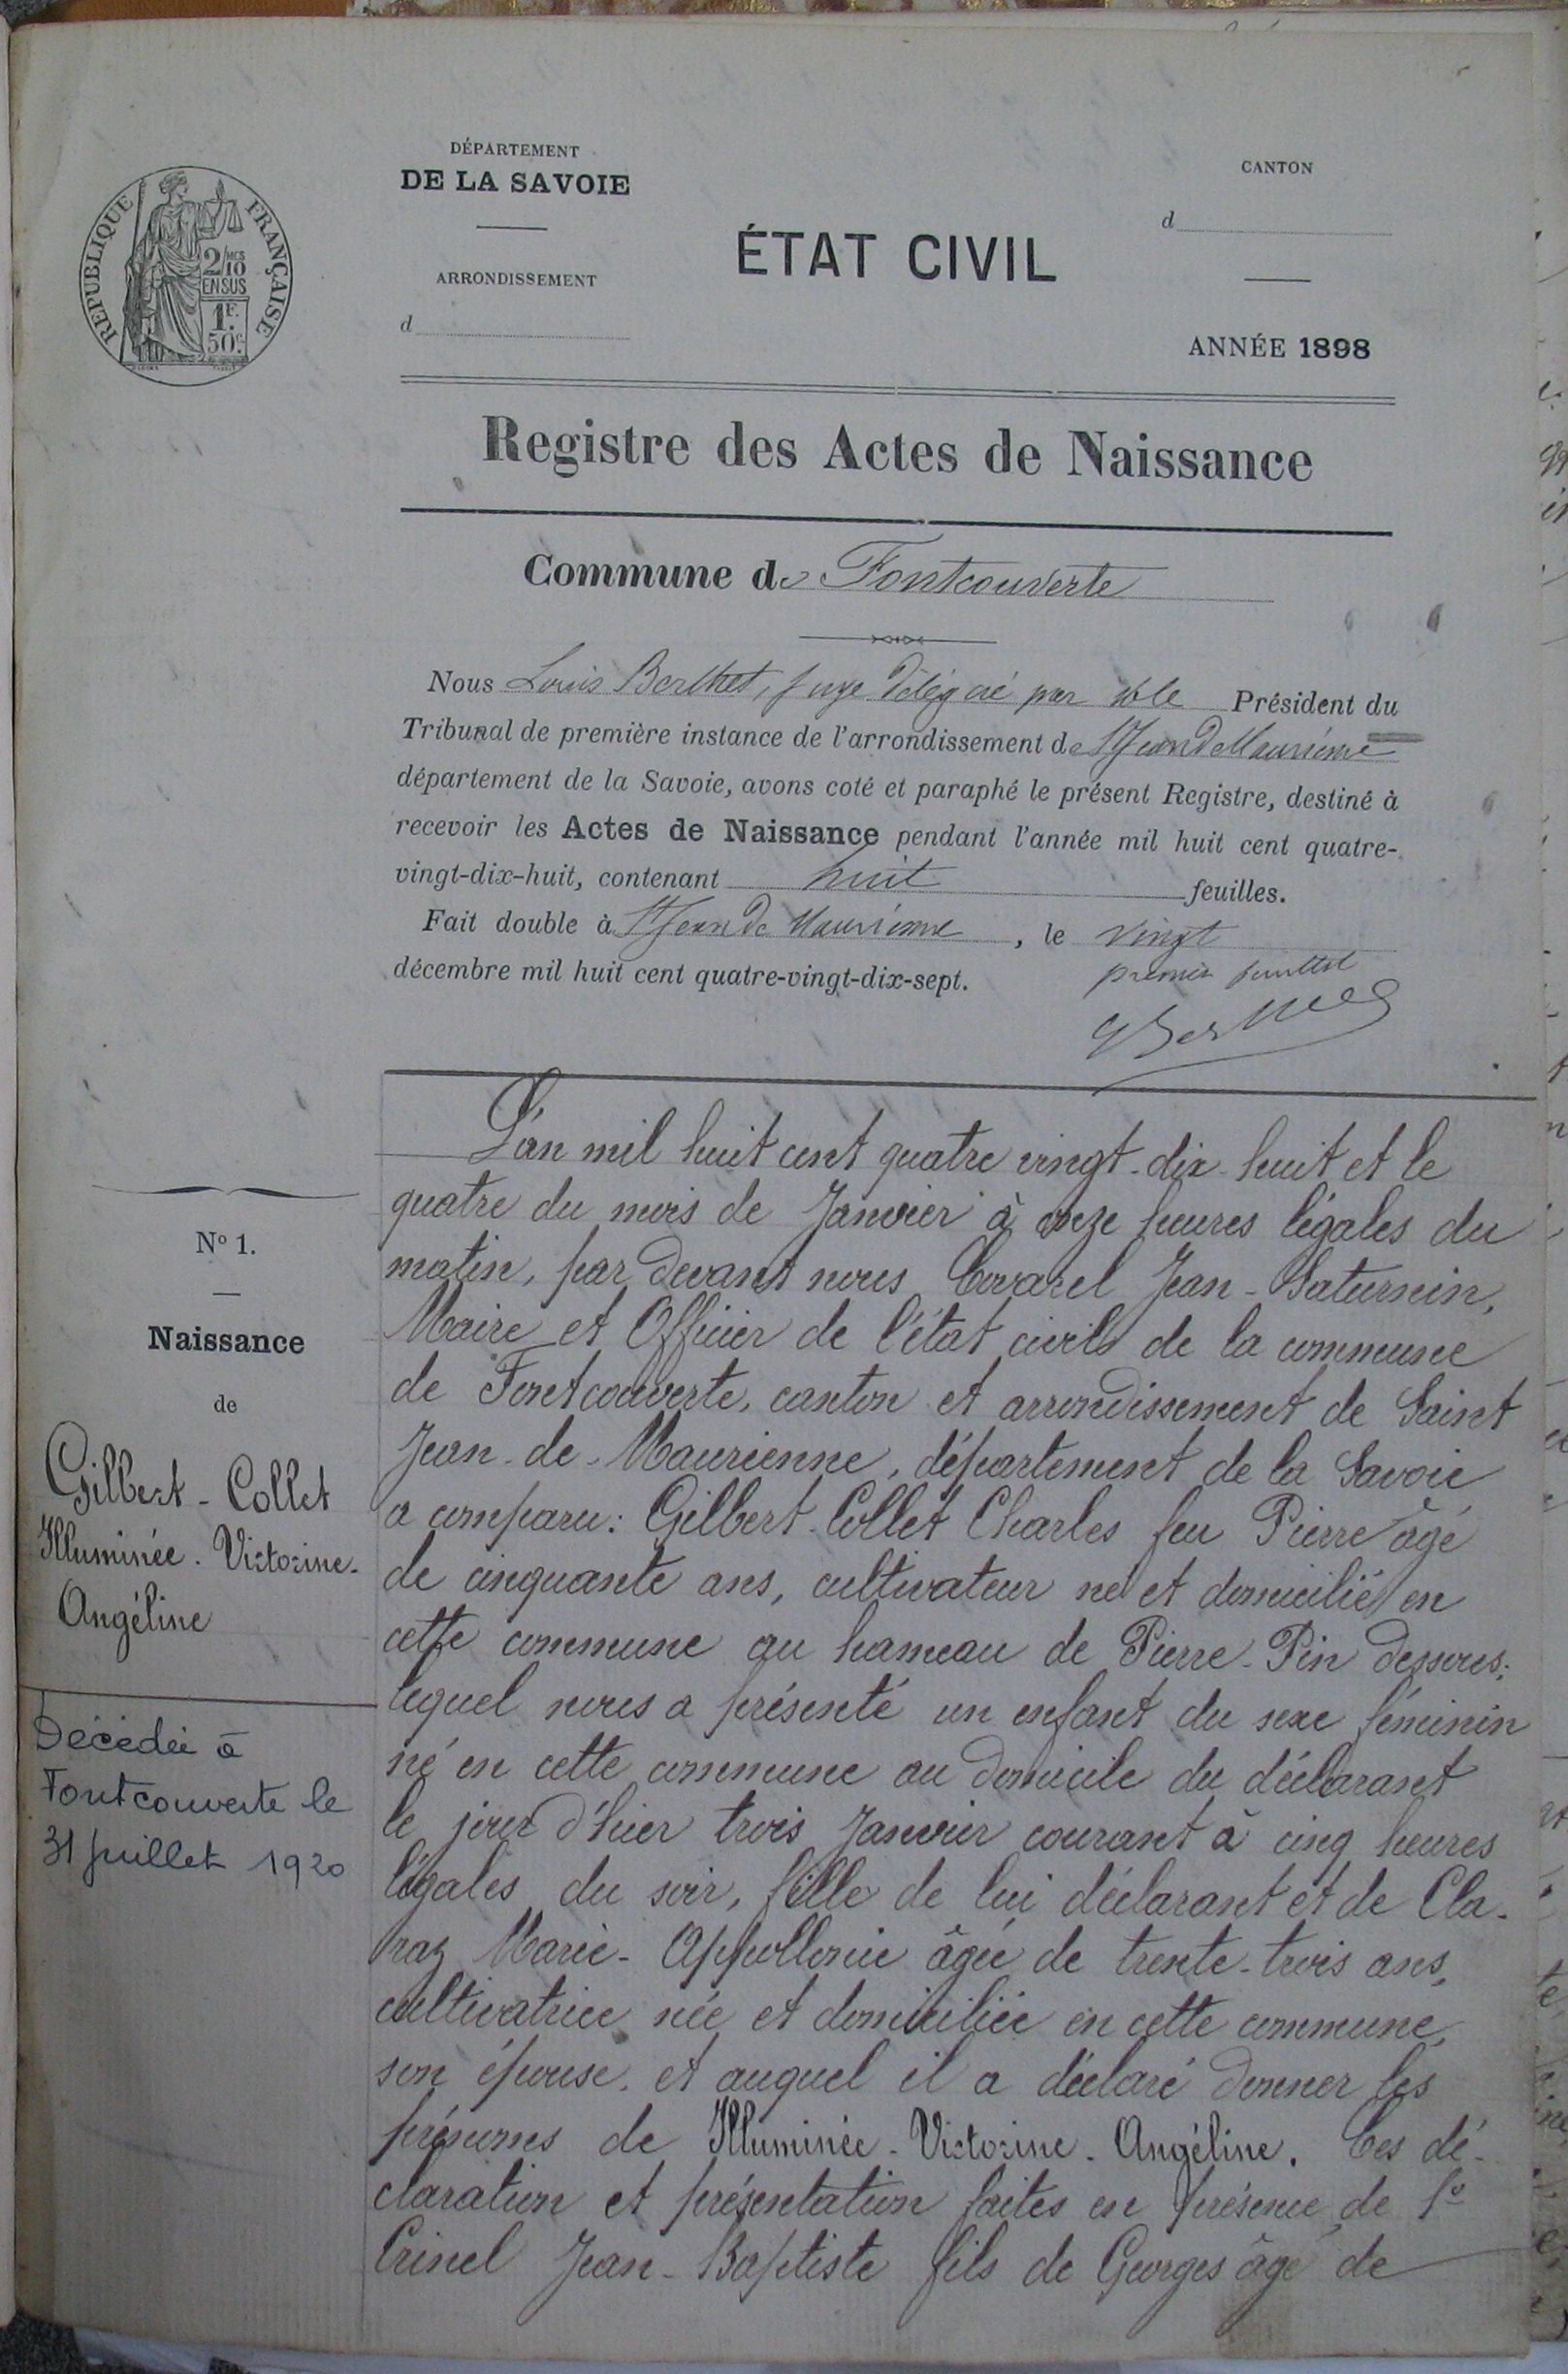 RÉPUBLIQUE FRANÇAISE
2/10 MES
EN SUS
1F.
50c.
DÉPARTEMENT
DE LA SAVOIE
ARRONDISSEMENT
d
ÉTAT CIVIL
CANTON
d
ANNÉE 1898
Registre des Actes de Naissance
Commune de Fontcouverte
Nous Louis Berthet, juge délégué par Mr le Président du
Tribunal de première instance de l'arrondissement de St Jean de Maurienne
département de la Savoie, avons coté et paraphé le présent Registre, destiné à
recevoir les Actes de Naissance pendant l'année mil huit cent quatre-
vingt-dix-huit, contenant huit feuilles.
Fait double à St Jean de Maurienne, le vingt
décembre mil huit cent quatre-vingt-dix-sept.
premier feuillet
N° 1.
Naissance
de
Gilbert-Collet
Illuminée-Victorine-
Angéline
Décédée à
Fontcouverte le
31 juillet 1920
L'an mil huit cent quatre vingt-dix-huit et le
quatre du mois de Janvier à onze heures légales du
matin, par devant nous Covarel Jean-Saturnin,
Maire et Officier de l'état civils de la commune
de Fontcouverte, canton et arrondissement de Saint
Jean-de-Maurienne, département de la Savoie
a comparu: Gilbert-Collet Charles feu Pierre âgé
de cinquante ans, cultivateur né et domicilié en
cette commune au hameau de Pierre-Pin dessous;
lequel nous a présenté un enfant du sexe féminin
né en cette commune au domicile du déclarant
le jour d'hier trois Janvier courant à cinq heures
légales du soir, fille de lui déclarant et de Cla-
raz Marie-Appollonie âgée de trente-trois ans,
cultivatrice née et domiciliée en cette commune,
son épouse, et auquel il a déclaré donner les
prénoms de Illuminée-Victorine-Angéline. Ces dé-
claration et présentation faites en présence de 1°
Crinel Jean-Baptiste fils de Georges âgé de